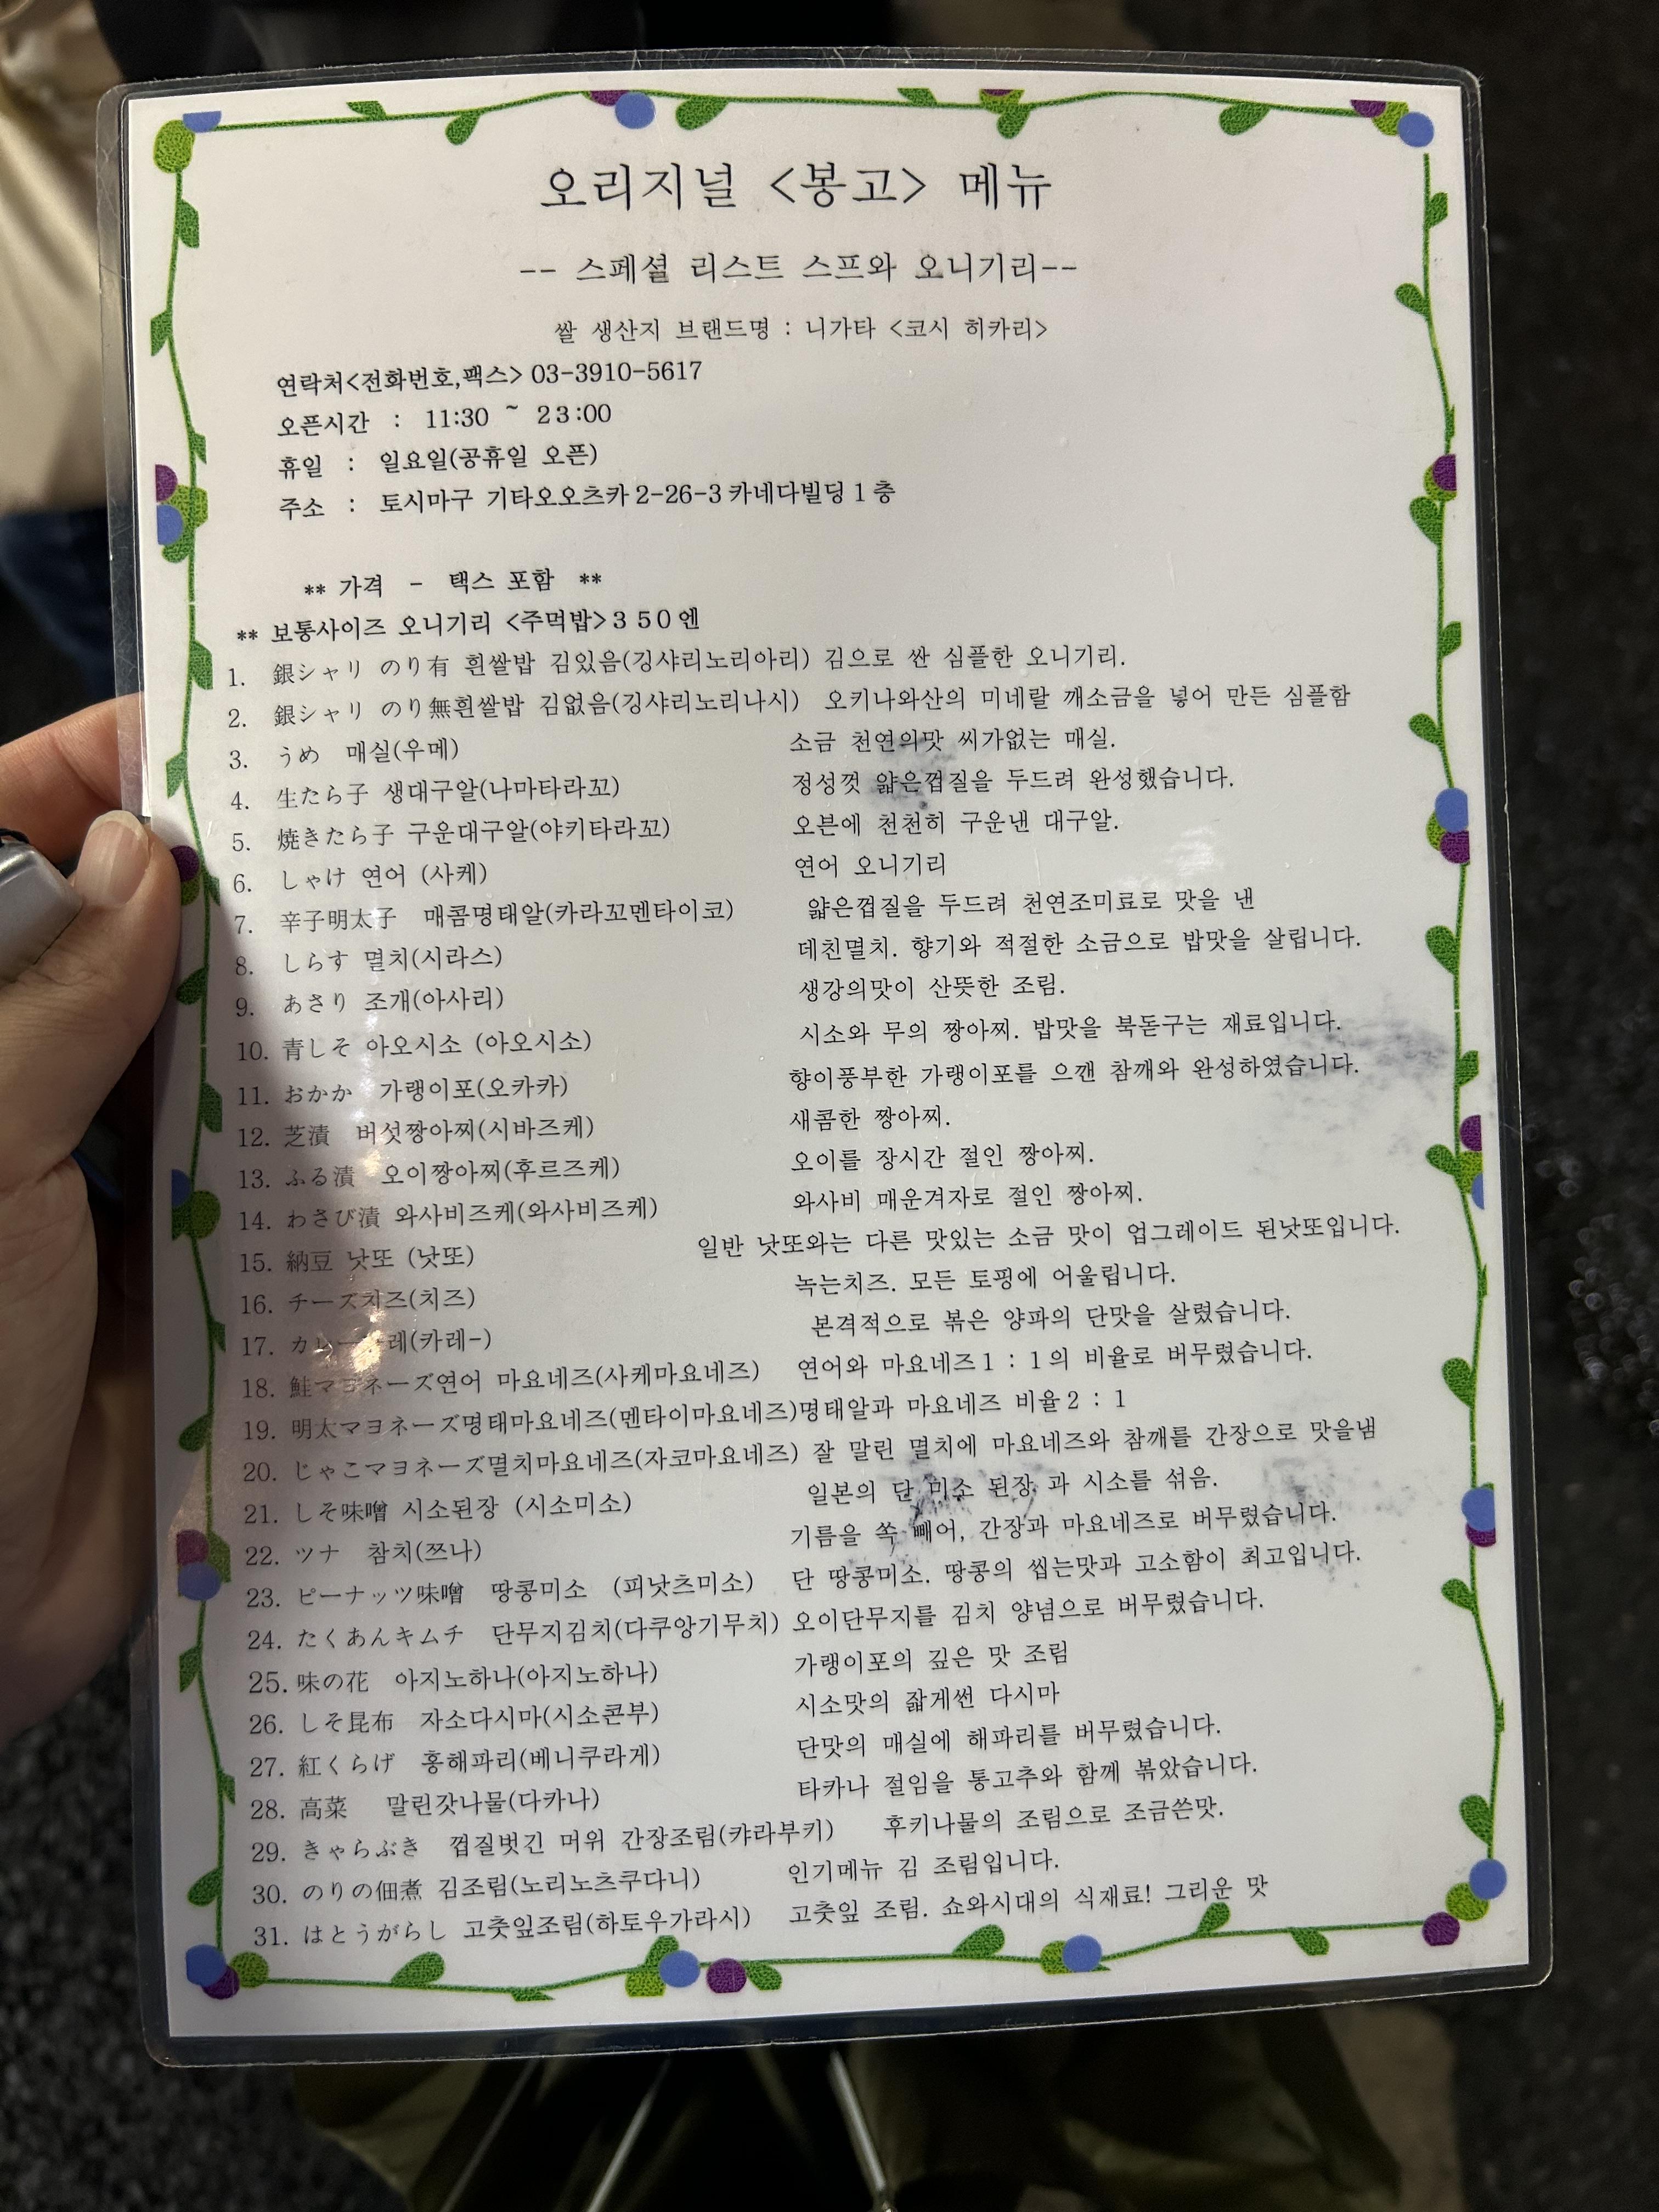 오리지널 <봉고> 메뉴
-- 스페셜 리스트 스프와 오니기리--
쌀 생산지 브랜드명 : 니가타 <코시 히카리>
연락처<전화번호,팩스> 03-3910-5617
오픈시간 : 11:30 ~ 23:00
휴일 : 일요일(공휴일 오픈)
주소 : 토시마구 기타오오츠카 2-26-3 카네다빌딩 1 층
** 가격 - 택스 포함 **
** 보통사이즈 오니기리 <주먹밥>３５０엔
1. 銀シャリ のり有 흰쌀밥 김있음(깅샤리노리아리) 김으로 싼 심플한 오니기리.
2. 銀シャリ のり無흰쌀밥 김없음(깅샤리노리나시) 오키나와산의 미네랄 깨소금을 넣어 만든 심플함
3. うめ 매실(우메) 소금 천연의맛 씨가없는 매실.
4. 生たら子 생대구알(나마타라꼬) 정성껏 얇은껍질을 두드려 완성했습니다.
5. 焼きたら子 구운대구알(야키타라꼬) 오븐에 천천히 구운낸 대구알.
6. しゃけ 연어 (사케) 연어 오니기리
7. 辛子明太子 매콤명태알(카라꼬멘타이코) 얇은껍질을 두드려 천연조미료로 맛을 낸
8. しらす 멸치(시라스) 데친멸치. 향기와 적절한 소금으로 밥맛을 살립니다.
9. あさり 조개(아사리) 생강의맛이 산뜻한 조림.
10. 青しそ 아오시소 (아오시소) 시소와 무의 짱아찌. 밥맛을 북돋구는 재료입니다.
11. おかか 가랭이포(오카카) 향이풍부한 가랭이포를 으깬 참깨와 완성하였습니다.
12. 芝漬 버섯짱아찌(시바즈케) 새콤한 짱아찌.
13. ふる漬 오이짱아찌(후르즈케) 오이를 장시간 절인 짱아찌.
14. わさび漬 와사비즈케(와사비즈케) 와사비 매운겨자로 절인 짱아찌.
15. 納豆 낫또 (낫또) 일반 낫또와는 다른 맛있는 소금 맛이 업그레이드 된낫또입니다.
16. チーズ치즈(치즈) 녹는치즈. 모든 토핑에 어울립니다.
17. (카레-) 본격적으로 볶은 양파의 단맛을 살렸습니다.
18. 鮭マヨネーズ연어 마요네즈(사케마요네즈) 연어와 마요네즈1 : 1의 비율로 버무렸습니다.
19. 明太マヨネーズ명태마요네즈(멘타이마요네즈)명태알과 마요네즈 비율2 : 1
20. じゃこマヨネーズ멸치마요네즈(자코마요네즈) 잘 말린 멸치에 마요네즈와 참깨를 간장으로 맛을냄
21. しそ味噌 시소된장 (시소미소) 일본의 단 미소 된장 과 시소를 섞음.
22. ツナ 참치(쯔나) 기름을 쏙 빼어, 간장과 마요네즈로 버무렸습니다.
23. ピーナッツ味噌 땅콩미소 (피낫츠미소) 단 땅콩미소. 땅콩의 씹는맛과 고소함이 최고입니다.
24. たくあんキムチ 단무지김치(다쿠앙기무치) 오이단무지를 김치 양념으로 버무렸습니다.
25. 味の花 아지노하나(아지노하나) 가랭이포의 깊은 맛 조림
26. しそ昆布 자소다시마(시소콘부) 시소맛의 잛게썬 다시마
27. 紅くらげ 홍해파리(베니쿠라게) 단맛의 매실에 해파리를 버무렸습니다.
28. 高菜 말린갓나물(다카나) 타카나 절임을 통고추와 함께 볶았습니다.
29. きゃらぶき 껍질벗긴 머위 간장조림(캬라부키) 후키나물의 조림으로 조금쓴맛.
30. のりの佃煮 김조림(노리노츠쿠다니) 인기메뉴 김 조림입니다.
31. はとうがらし 고춧잎조림(하토우가라시) 고춧잎 조림. 쇼와시대의 식재료! 그리운 맛